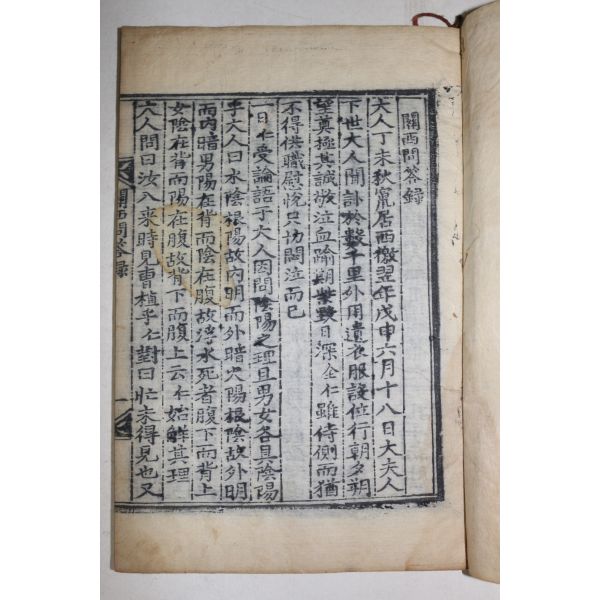 關西問答錄
大人丁未秋竄居西檄翌年戊申六月十八日大夫人
下世大人聞訃於數千里外用遺衣服設位行朝夕朔
望奠極其誠敬泣血踰期柴毀日深全仁雖侍側而猶
不得供職慰悅只切悶泣而已
一日仁受論語于大人因問陰陽之理且男女各具陰陽
乎大人曰水陰根陽故內明而外暗火陽根陰故外明
而內暗男陽在背而陰在腹故浮水死者腹下而背上
女陰在背而陽在腹故背下而腹上云仁始解其理
大人問曰汝入來時見曹植乎仁對曰忙未得見也又
關西問答錄 一